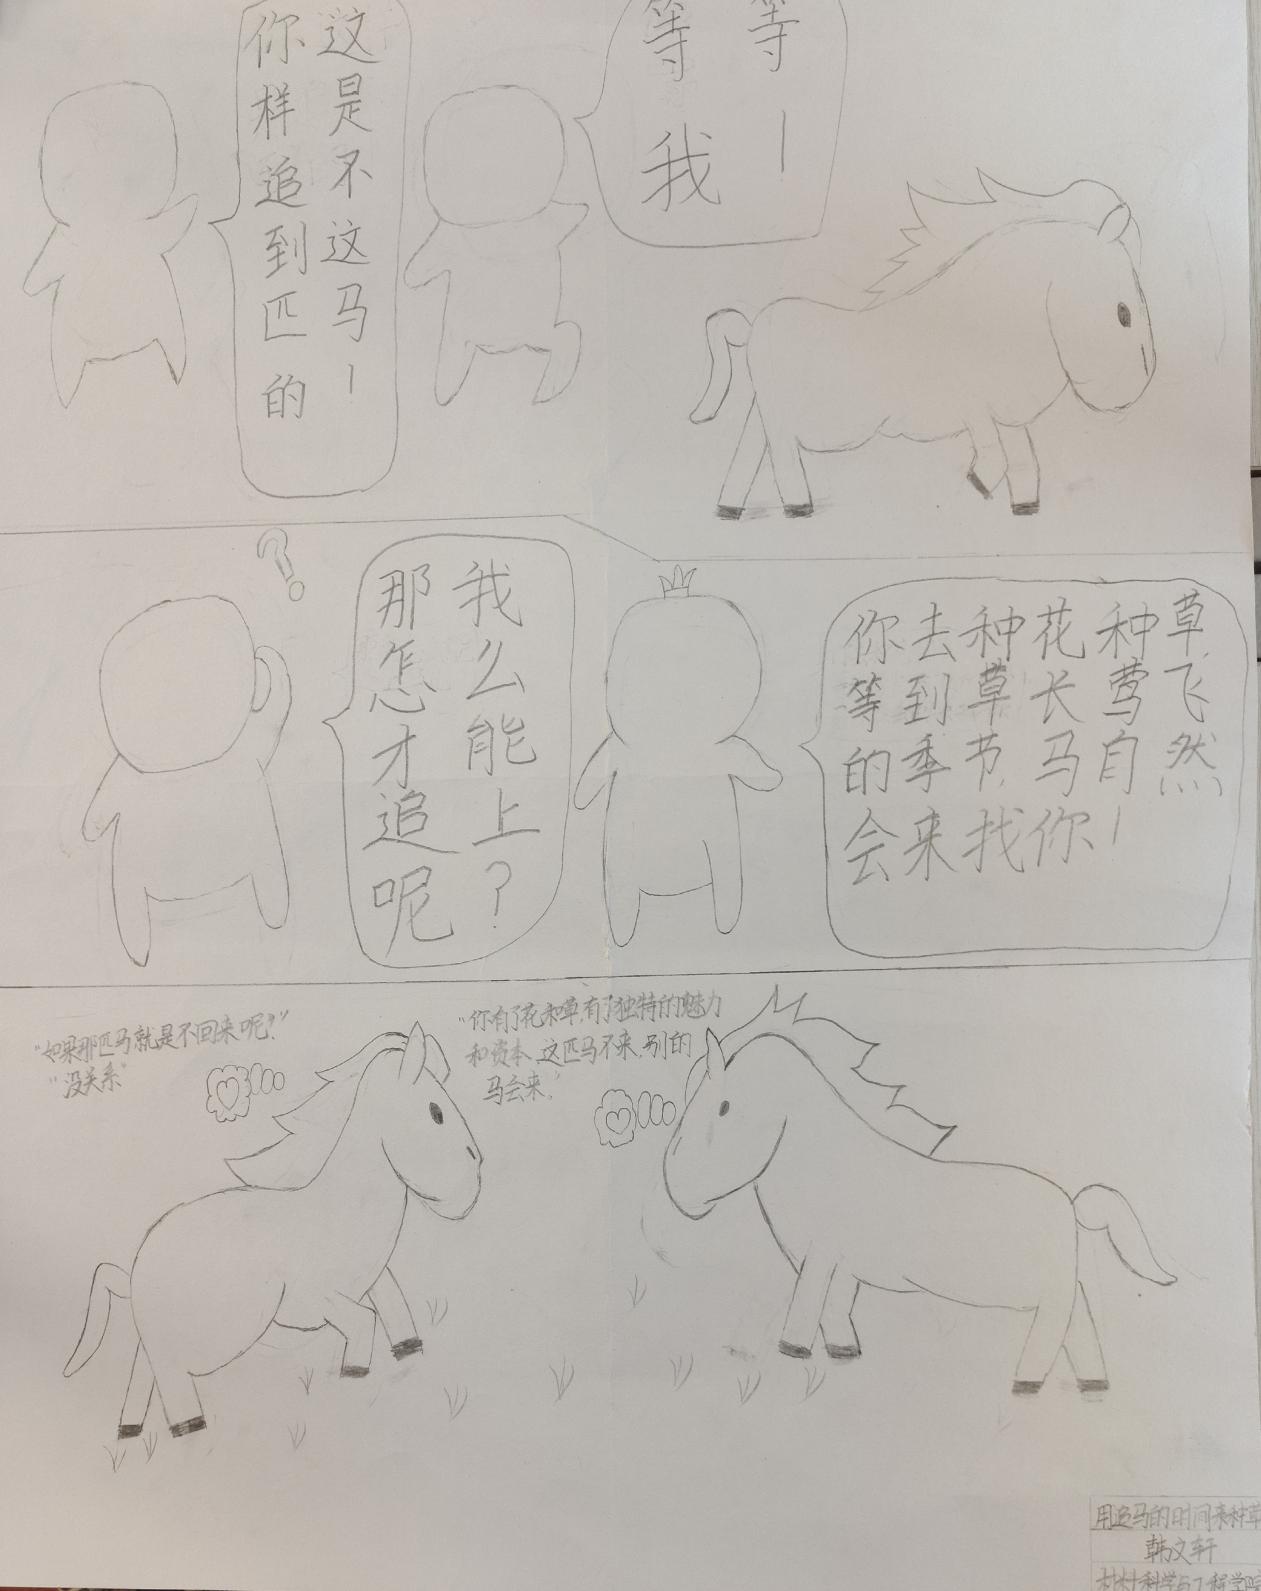 你这
样是
追不
到这
匹马
的!
等等
我!
?
那我
怎么
才能
追上
呢?
你去种花种草,
等到草长莺飞
的季节,马自然
会来找你!
"如果那匹马就是不回来呢?"
"没关系"
"你有了花和草,有了独特的魅力
和资本,这匹马不来,别的
马会来."
用追马的时间来种草
韩文轩
材料科学与工程学院